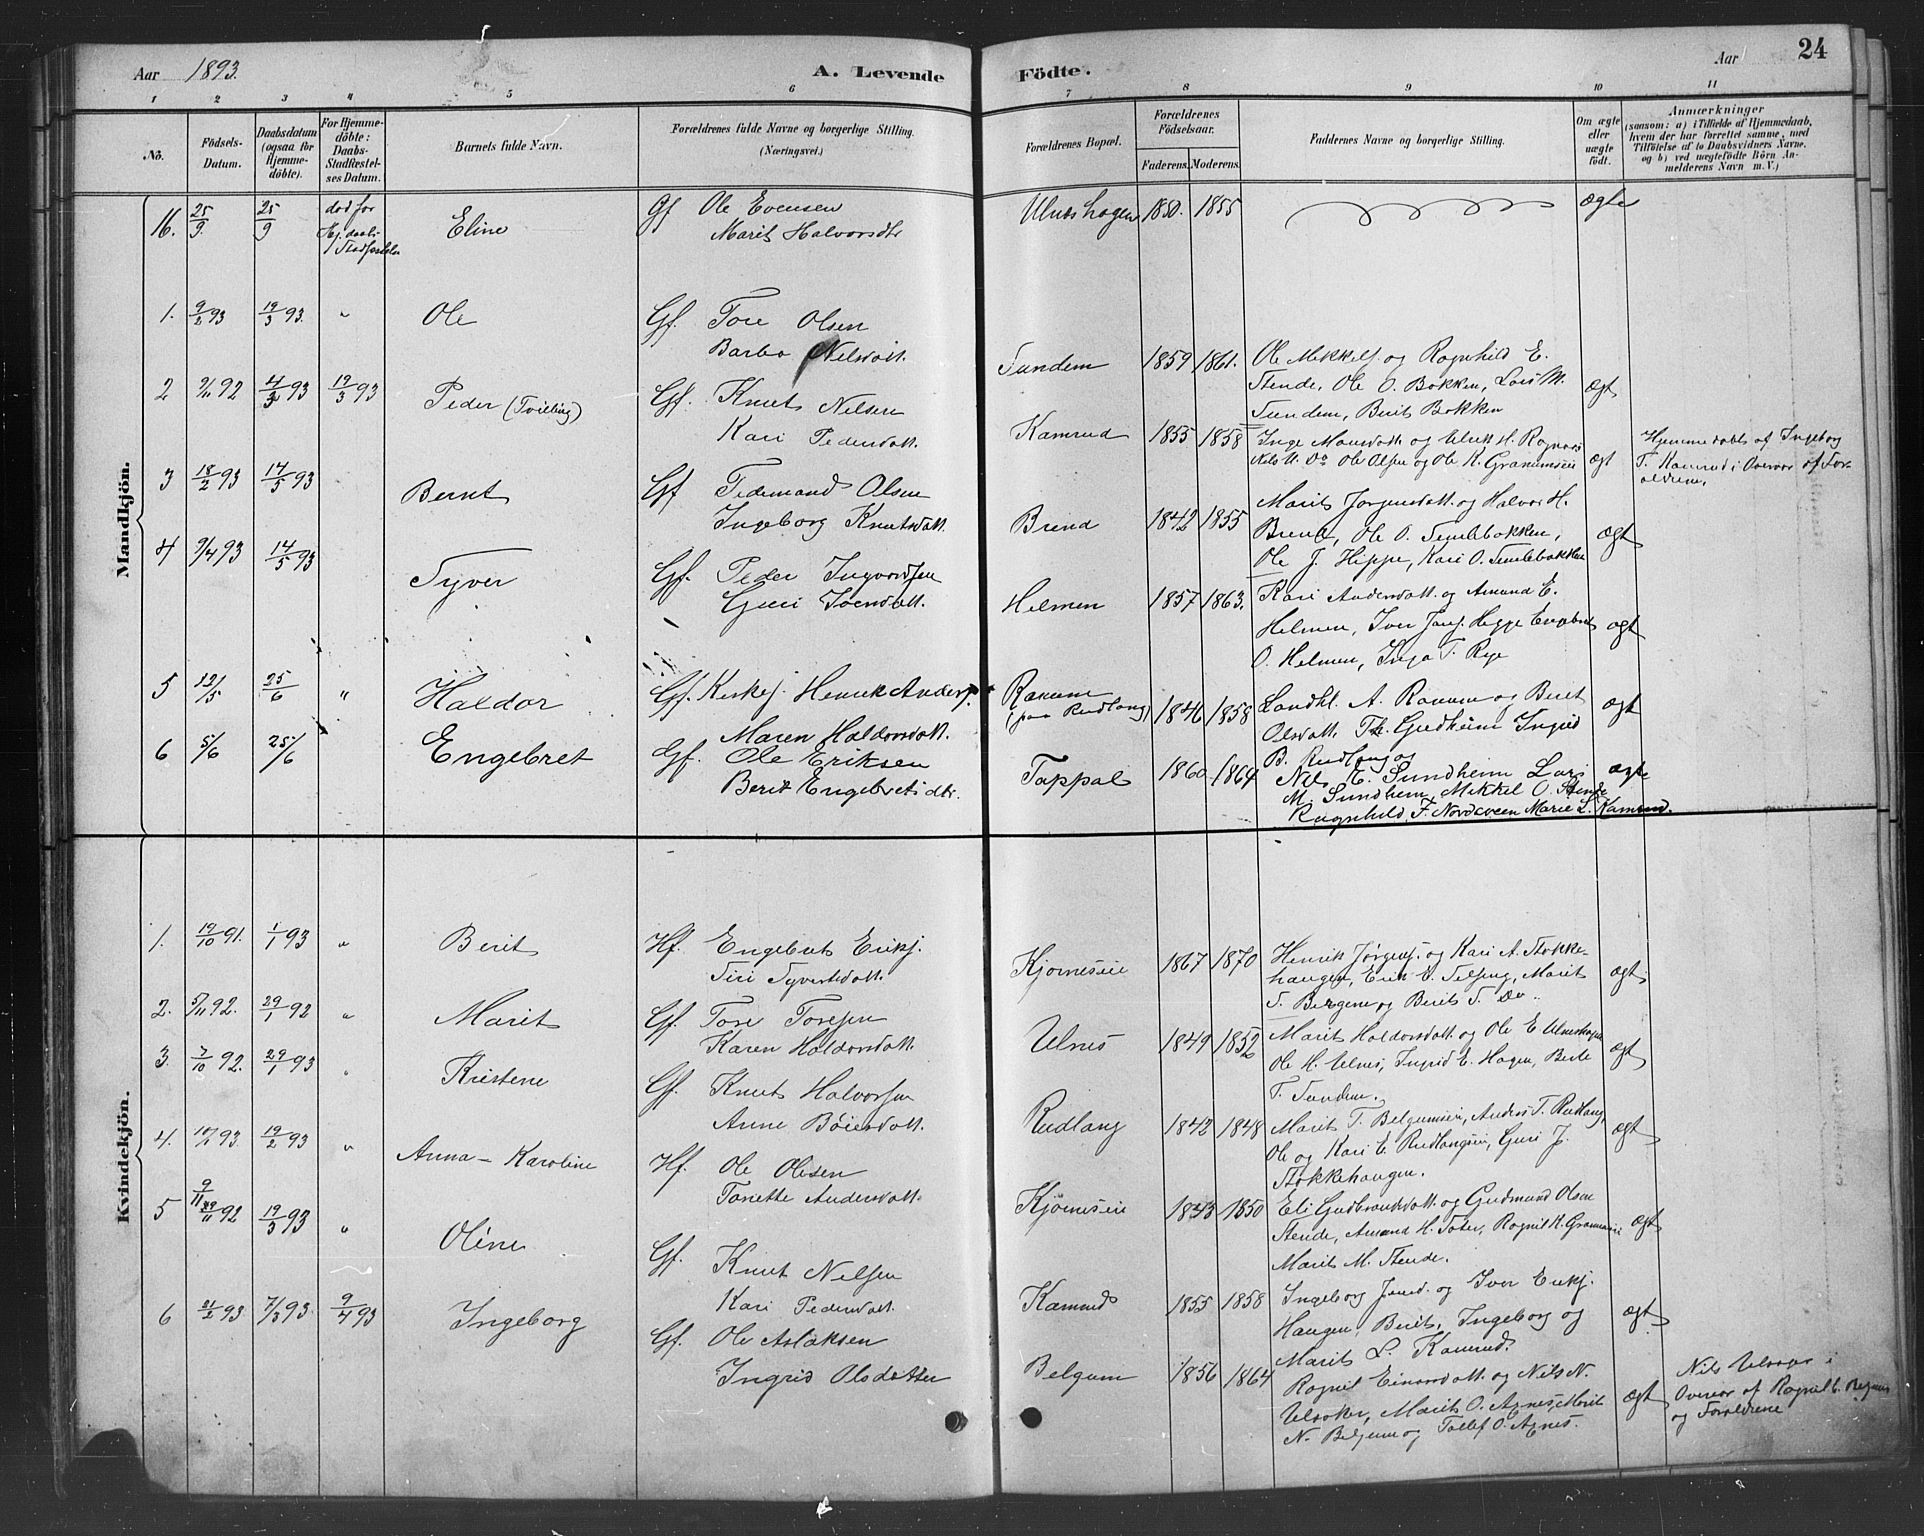 Aar 1893. A. Levende
Födte. Aar 24
1 2 3 4 5 6 7 8 9 10 11
No.
Födsels-
Datum.
Daabsdatum
(ogsaa for
Hjemme-
döbte).
For Hjemme-
döbte:
Daabs-
Stadfæstel-
ses Datum.
Barnets fulde Navn.
Forældrenes fulde Navne og borgerlige Stilling.
(Næringsvei.)
Forældrenes Bopæl.
Forældrenes
Födselsaar.
Faderens. Moderens.
Faddernes Navne og borgerlige Stilling.
Om ægte
eller
uægte
födt.
Anmærkninger
(saasom: a) i Tilfælde af Hjemmedaab,
hvem der har forrettet samme, med
Tilföielse af to Daabsvidners Navne.
og b) ved uægtefödte Börn An-
melderens Navn m. V.)
16. 25/9. 25/9 død før
Hj.daabs
Stadfæstelsen
Eline Gf Ole Evensen
Marit Halvorsdtr
Ulnæshagen 1850. 1855 ægte
Mandkjön.
1. 9/2 93 19/3 93. " Ole Gf. Tore Olsen
Barbo Nilsdatt.
Sundem 1859 1861. Ole Mikkels. og Rognhild E.
Stende, Ole O. Bakken, Lars M.
Sundem, Berit Bakken
ægt
2 9/11 92 4/3 93 19/3 93 Peder (Tvilling) Gf. Knut Nilsen
Kari Pedersdatt.
Kamrud 1855 1858 Inge Monsdatt. og Ulrik H. Rognaas
Nils H. Do Ole Olsen og Ole K. Granumseie
ægt
Hjemmedøbt af Ingeborg
T. Kamrud i Overvær af For-
ældrene.
3 18/2 93 14/5 93 Bernt Gf Tidemand Olsen
Ingeborg Knutsdatt.
Brend 1842 1855 Marit Jørgensdatt. og Halvor H.
Brend, Ole O. Semlebakken,
Ole J. Hippe, Kari O. Semlebakken
ægt
4 9/4 93 14/5 93 Syver Gf. Peder Ingvordsen
Guri Iversdatt.
Helmen 1857 1863. Kari Andersdatt. og Amund E.
Helmen, Iver Jons. Hegge Engebret
O. Helmen, Inga T. Rye
ægt
5 12/5 25/6 " Haldor Gf. Kirkes. Henrik Anders.
Maren Haldorsdatt.
Ranum
(paa Rudlang) 1846 1858 Landhl. A. Ranum og Berit
Olsdatt. Th. Gudheim Ingrid
B. Rudlang
ægt
6 5/6 25/6 Engebret Gf. Ole Eriksen
Berit Engebretsdtr.
Tappal 1860 1864 Nils E. Sundheim Lars
M. Sundheim, Mikkel O. Stende
Ragnhild F. Nordaveen Marie L. Kamrud.
ægte
Kvindekjön.
1. 19/10 91. 1/1 93 " Berit Hf. Engebret Eriks.
Siri Syversdatt.
Kjørneseie 1867 1870 Henrik Jørgens. og Kari A. Stokke-
haugen, Erik E. Selseng, Marit
S. Bergene og Berit S. Do.
ægt
2. 5/11 92. 29/1 92 " Marit Gf. Tore Toresen
Karen Haldorsdatt.
Ulnes 1849 1852 Marit Haldorsdatt. og Ole E. Ulneshagen
Ole H. Ulnes, Ingrid E. Hagen, Berte
T. Sundem.
ægt
3. 7/10 92. 29/1 93 " Kristene Gf. Knut Halvorsen
Anne Bøiesdatt.
Rudlang 1842 1848 Marit T. Belgumseie, Anders T. Rudlang,
Ole og Kari E. Rudlangseie, Guri J.
Stokkehaugen.
ægt
4. 93. 19/2 93 " Anna-Karoline Hf. Ole Olesen
Tonette Andersdatt.
Kjørneseie 1843 1850 Eli Gudbrandsdatt. og Gudmund Olsen
Stende, Amund H. Foter, Rognil K. Granumseie
Marit M. Stende.
ægt
5 9/11 92 19/3 93 " Oline Gf. Knut Nilsen
Kari Pedersdatt.
Kamrud 1855 1858 Ingeborg Jonsd. og Iver Eriks.
Haugen, Berit, Ingeborg og
Marit L. Kamrud.
ægt
6 21/2 93 7/3 93 9/4 93 Ingeborg Gf. Ole Aslaksen
Ingrid Olsdatter
Belgum 1856 1864 Rognil Einarsdatt. og Nils N.
Ulsaker, Marit O. Agnes, Marit
N. Belgum og Tollef O. Agnes.
ægt
Nils Ulsaker i
Overvær af Rognil E. Belgum
og Forældrene